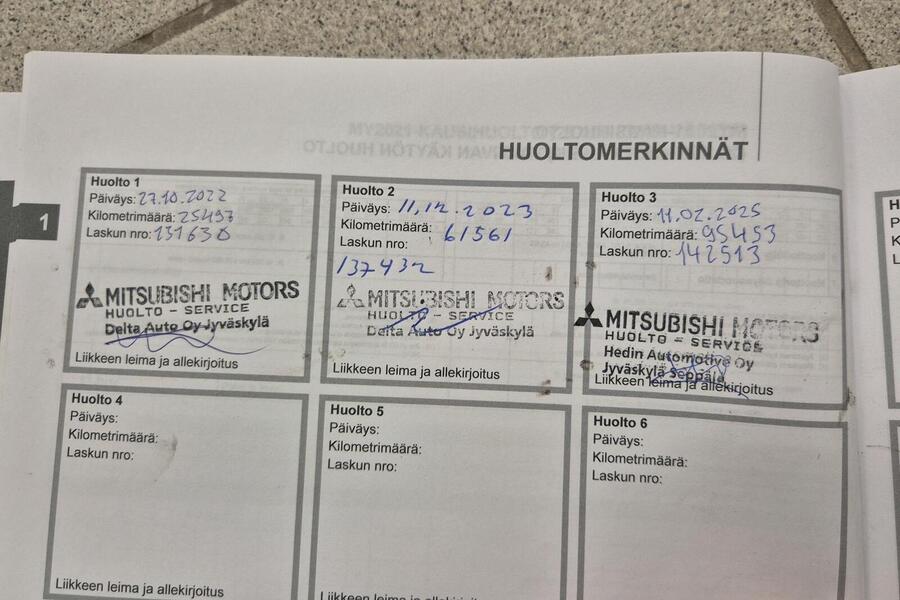 HUOLTOMERKINNÄT
1
Huolto 1
Päiväys: 27.10.2022
Kilometrimäärä: 25497
Laskun nro: 131630
MITSUBISHI MOTORS
HUOLTO - SERVICE
Delta Auto Oy Jyväskylä
Liikkeen leima ja allekirjoitus
Huolto 2
Päiväys: 11.12.2023
Kilometrimäärä: 61561
Laskun nro:
137432
MITSUBISHI MOTORS
HUOLTO - SERVICE
Delta Auto Oy Jyväskylä
Liikkeen leima ja allekirjoitus
Huolto 3
Päiväys: 11.02.2025
Kilometrimäärä: 95453
Laskun nro: 142513
MITSUBISHI MOTORS
HUOLTO - SERVICE
Hedin Automotive Oy
Jyväskylä Seppälä
Liikkeen leima ja allekirjoitus
Huolto 4
Päiväys:
Kilometrimäärä:
Laskun nro:
Liikkeen leima ja allekirjoitus
Huolto 5
Päiväys:
Kilometrimäärä:
Laskun nro:
Liikkeen leima ja allekirjoitus
Huolto 6
Päiväys:
Kilometrimäärä:
Laskun nro: